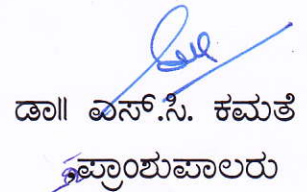 ಡಾ|| ಎಸ್.ಸಿ. ಕಮತೆ
ಪ್ರಾಂಶುಪಾಲರು